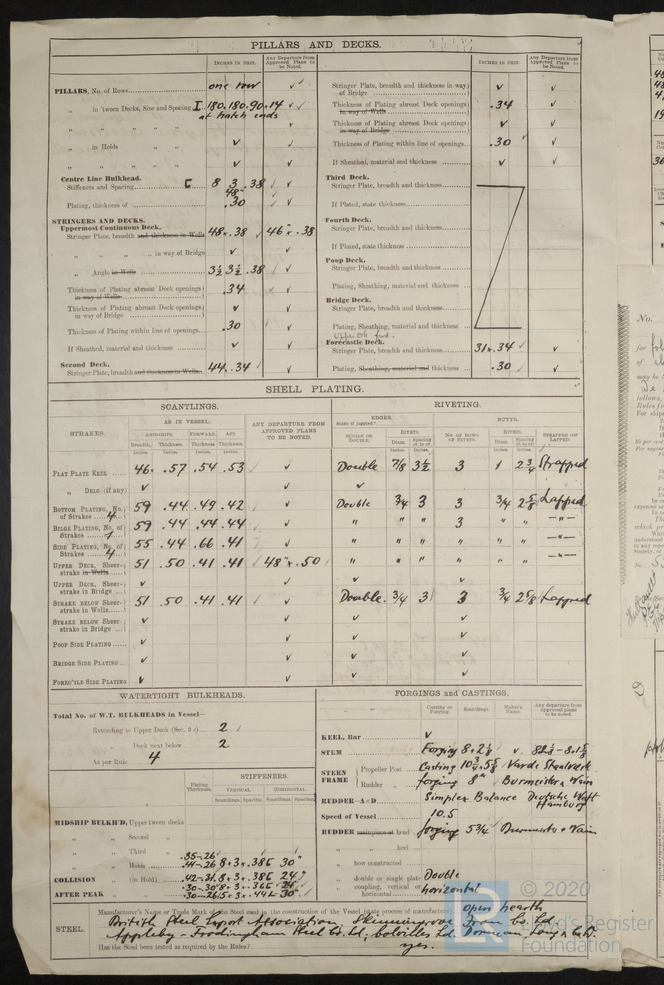 PILLARS AND DECKS.
INCHES IN SHIP. Any Departure from Approved Plans to be Noted.
PILLARS, No. of Rows one row ✓
" in 'tween Decks, Size and Spacing I 180.180.90.14 ✓
at hatch ends
" " " " ✓
" in Holds " ✓ ✓
" " " " ✓ ✓
Centre Line Bulkhead.
Stiffeners and Spacing [ 8 3 .38 ✓
48"
Plating, thickness of .30 ✓
STRINGERS AND DECKS.
Uppermost Continuous Deck.
Stringer Plate, breadth and thickness in Wells 48 × .38 46" × .38
" " " in way of Bridge ✓ ✓
" Angle in Wells 3½ 3½ .38 ✓
Thickness of Plating abreast Deck openings in way of Wells .34 ✓
Thickness of Plating abreast Deck openings in way of Bridge ✓ ✓
Thickness of Plating within line of openings .30 ✓
If Sheathed, material and thickness ✓ ✓
Second Deck.
Stringer Plate, breadth and thickness in Wells 44 .34 ✓
INCHES IN SHIP. Any Departure from Approved Plans to be Noted.
Stringer Plate, breadth and thickness in way of Bridge ✓ ✓
Thickness of Plating abreast Deck openings in Wells .34 ✓
Thickness of Plating abreast Deck openings in way of Bridge ✓ ✓
Thickness of Plating within line of openings .30 ✓
If Sheathed, material and thickness ✓ ✓
Third Deck.
Stringer Plate, breadth and thickness
If Plated, state thickness
Fourth Deck.
Stringer Plate, breadth and thickness
If Plated, state thickness
Poop Deck.
Stringer Plate, breadth and thickness
Plating, Sheathing, material and thickness
Bridge Deck.
Stringer Plate, breadth and thickness
Plating, Sheathing, material and thickness
Upper Dk
Forecastle Deck.
Stringer Plate, breadth and thickness 31 × .34 ✓
Plating, Sheathing, material and thickness .30 ✓
SHELL PLATING.
SCANTLINGS. RIVETING.
STRAKES. AS IN VESSEL. ANY DEPARTURE FROM APPROVED PLANS TO BE NOTED. EDGES. BUTTS.
AMIDSHIPS. FORWARD. AFT. State if joggled? RIVETS. No. of ROWS OF RIVETS. RIVETS. STRAPPED OR LAPPED.
Breadth. Thickness. Thickness. Thickness. SINGLE OR DOUBLE. Diam. Spacing Diam. Spacing
FLAT PLATE KEEL 46 × .57 .54 .53 ✓ Double 7/8 3½ 3 1 2¾ Strapped
" DBLG (if any) ✓ ✓ ✓
BOTTOM PLATING, No. of Strakes 4 59 .44 .49 .42 ✓ Double ¾ 3 3 ¾ 2⅝ Lapped
BILGE PLATING, No. of Strakes 1 59 .44 .44 .44 ✓ " " " 3 " " -"-
SIDE PLATING, No. of Strakes 4 55 .44 .66 .41 ✓ " " " " " " -"-
UPPER DECK, Sheerstrake in Wells 51 .50 .41 .41 48" × .50 " " " " " " -"-
UPPER DECK, Sheerstrake in Bridge ✓ ✓ ✓ ✓
STRAKE BELOW Sheerstrake in Wells 51 .50 .41 .41 ✓ Double ¾ 3 3 ¾ 2⅝ Lapped
STRAKE BELOW Sheerstrake in Bridge ✓ ✓ ✓ ✓
POOP SIDE PLATING ✓ ✓ ✓ ✓
BRIDGE SIDE PLATING ✓ ✓ ✓ ✓
FOREC'TLE SIDE PLATING ✓ ✓ ✓ ✓
WATERTIGHT BULKHEADS.
Total No. of W.T. BULKHEADS in Vessel—
Extending to Upper Deck 2
" Deck next below 2
As per Rule 4
Plating Thickness. STIFFENERS.
VERTICAL. HORIZONTAL.
Scantlings. Spacing. Scantlings. Spacing.
MIDSHIP BULKH'D, Upper 'tween decks
" " Second "
" " Third "
.35-.26
" " Holds .44-.26 8 × 3 × .38 30"
COLLISION (in Hold)
AFTER PEAK "
FORGINGS and CASTINGS.
Casting or Forging. Scantlings. Maker's Name. Any departure from approved plans to be noted.
KEEL, Bar ✓
STEM Forging
STERN FRAME Propeller Post Casting Varde Staalværk
Rudder " forging 8" Burmeister & Wain
RUDDER Simplex Balance Deutsche Werft Hamburg
Speed of Vessel 10.5
RUDDER mainpiece at head forging 5¾ Burmeister & Wain
" " heel
" how constructed
" double or single plate Double
" coupling, vertical or horizontal horizontal
STEEL. Manufacturer's Name or Trade Mark of the Steel used in the construction of the Vessel (state process of manufacture) open hearth
British Steel Export Association
Appleby - Frodingham Steel Co. Ld; Colvilles Ld. Dorman, Long & Co. Ld.
Has the Steel been tested as required by the Rules? yes.
© 2020
Lloyd's Register
Foundation